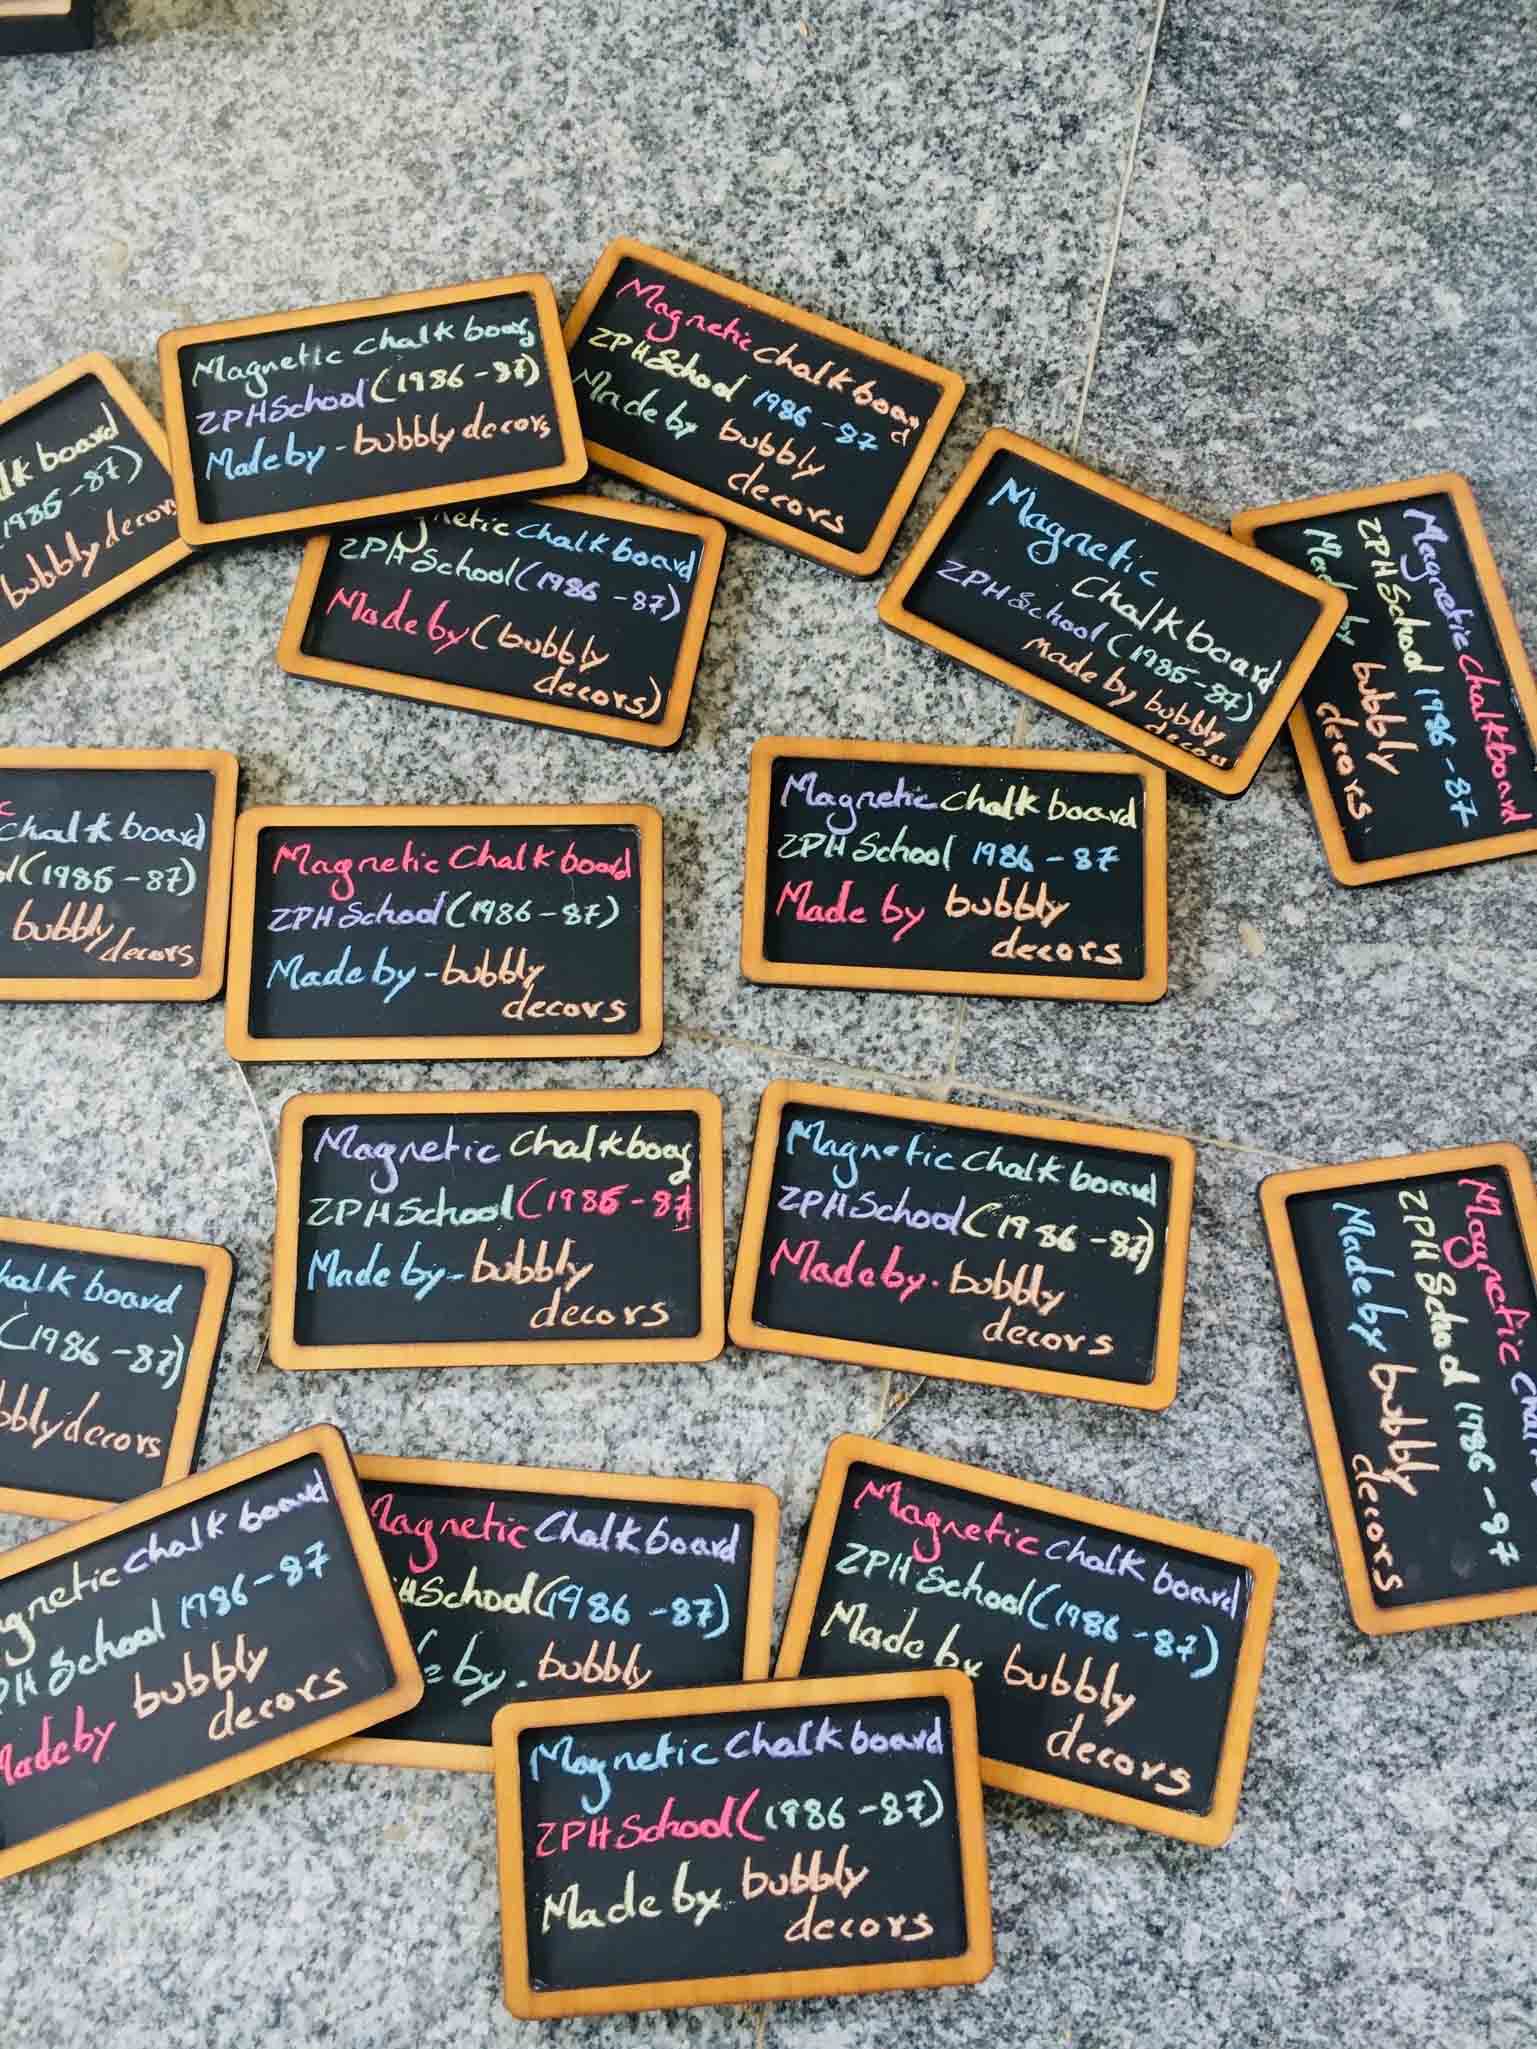 Magnetic chalk board
ZPHSchool (1986-87)
Made by - bubbly decors
Magnetic chalk board
ZPHSchool 1986-87
Made by bubbly
decors
lk board
1986-87)
bubbly decors
netic Chalk board
ZPHSchool (1986-87)
Made by (bubbly
decors)
Magnetic
Chalkboard
ZPHSchool (1986-87)
Made by bubbly
decors
Magnetic chalkboard
ZPHSchool 1986-87
Made by bubbly
decors
chalk board
(1986-87)
bubbly decors
Magnetic Chalk board
ZPHSchool (1986-87)
Made by - bubbly
decors
Magnetic chalk board
ZPHSchool 1986-87
Made by bubbly
decors
Magnetic Chalkboard
ZPHSchool (1986-87)
Made by - bubbly
decors
Magnetic chalk board
ZPHSchool (1986-87)
Made by. bubbly
decors
Magnetic
ZPHSchool 1986-87
Made by bubbly
decors
halk board
(1986-87)
bblydecors
gnetic chalk board
PHSchool 1986-87
Made by bubbly
decors
Magnetic Chalk board
HSchool (1986-87)
e by. bubbly
Magnetic chalk board
ZPHSchool (1986-87)
Made by bubbly
decors
Magnetic Chalk board
ZPHSchool (1986-87)
Made by bubbly
decors